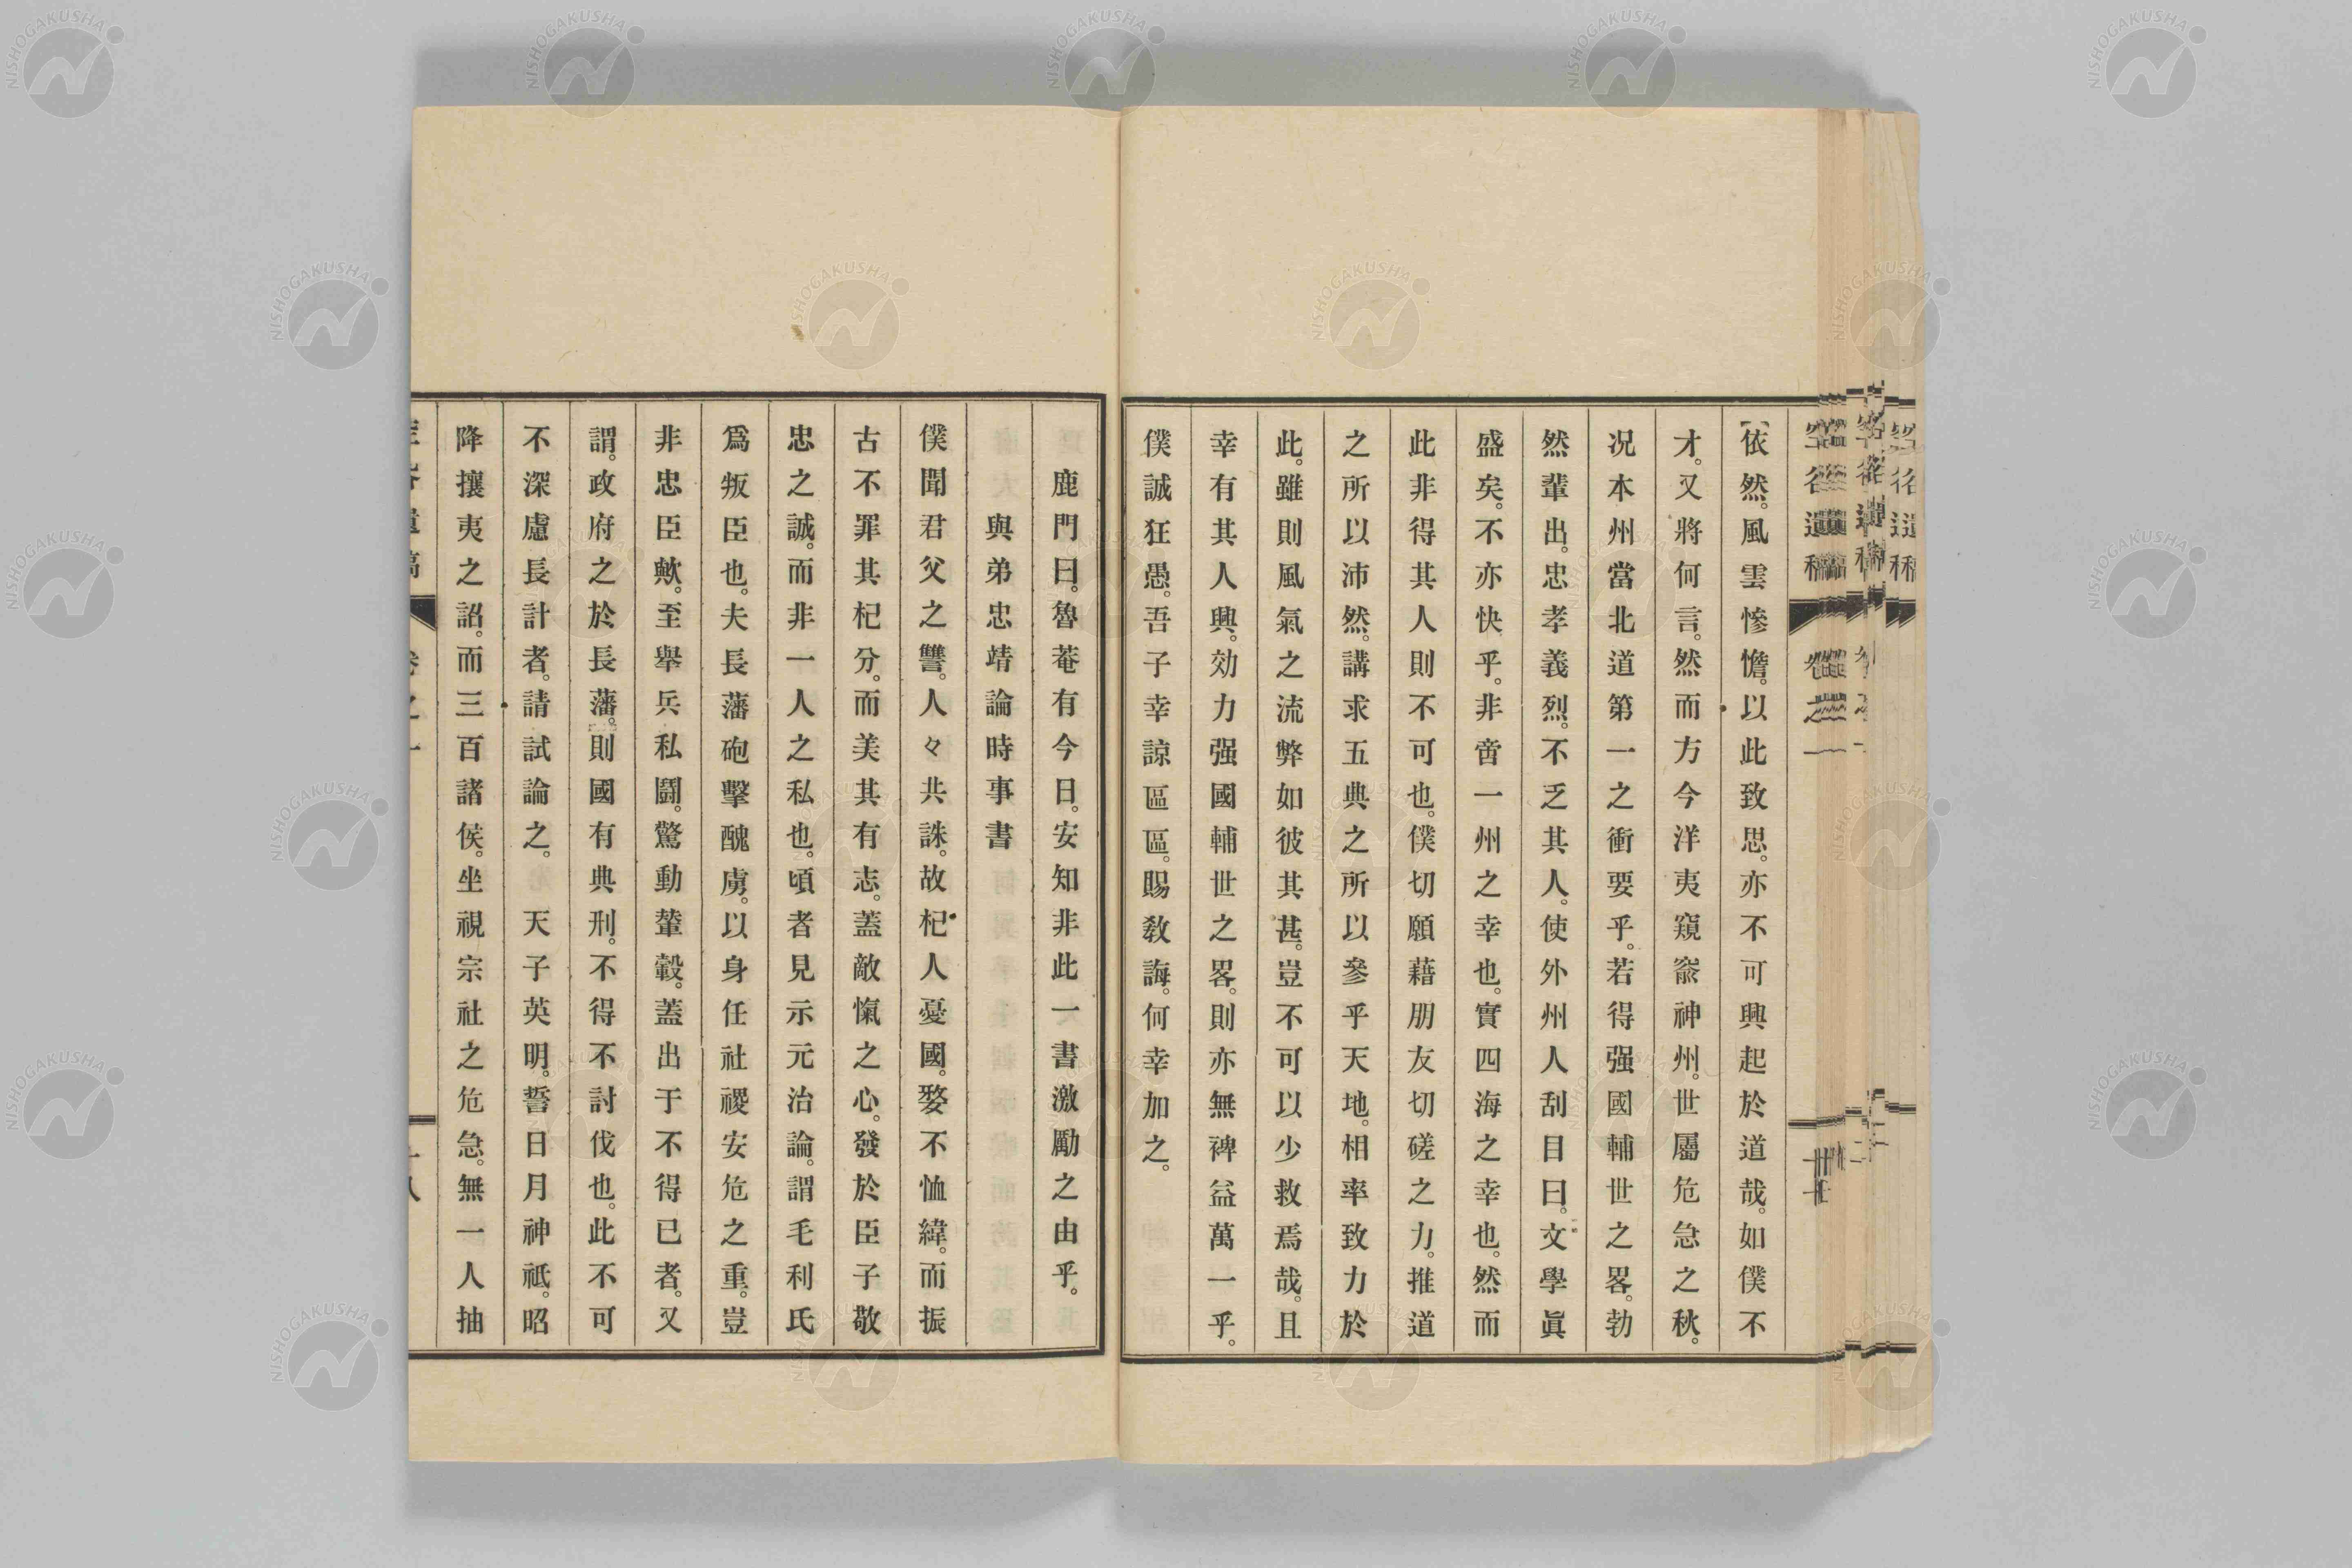 依然。風雲慘憺。以此致思。亦不可興起於道哉。如僕不
才。又將何言。然而方今洋夷窺窬神州。世屬危急之秋。
况本州當北道第一之衝要乎。若得强國輔世之畧。勃
然輩出。忠孝義烈。不乏其人。使外州人刮目曰。文學眞
盛矣。不亦快乎。非啻一州之幸也。實四海之幸也。然而
此非得其人則不可也。僕切願藉朋友切磋之力。推道
之所以沛然。講求五典之所以參乎天地。相率致力於
此。雖則風氣之流弊如彼其甚。豈不可以少救焉哉。且
幸有其人興。効力强國輔世之畧。則亦無裨益萬一乎。
僕誠狂愚。吾子幸諒區區。賜敎誨。何幸加之。
鹿門曰。魯菴有今日。安知非此一書激勵之由乎。
與弟忠靖論時事書
僕聞君父之讐。人々共誅。故杞人憂國。嫠不恤緯。而振
古不罪其杞分。而美其有志。蓋敵愾之心。發於臣子敬
忠之誠。而非一人之私也。頃者見示元治論。謂毛利氏
爲叛臣也。夫長藩砲擊醜虜。以身任社稷安危之重。豈
非忠臣歟。至舉兵私鬪。驚動輦轂。蓋出于不得已者。又
謂。政府之於長藩。則國有典刑。不得不討伐也。此不可
不深慮長計者。請試論之。天子英明。誓日月神祇。昭
降攘夷之詔。而三百諸侯。坐視宗社之危急。無一人抽
NISHOGAKUSHA